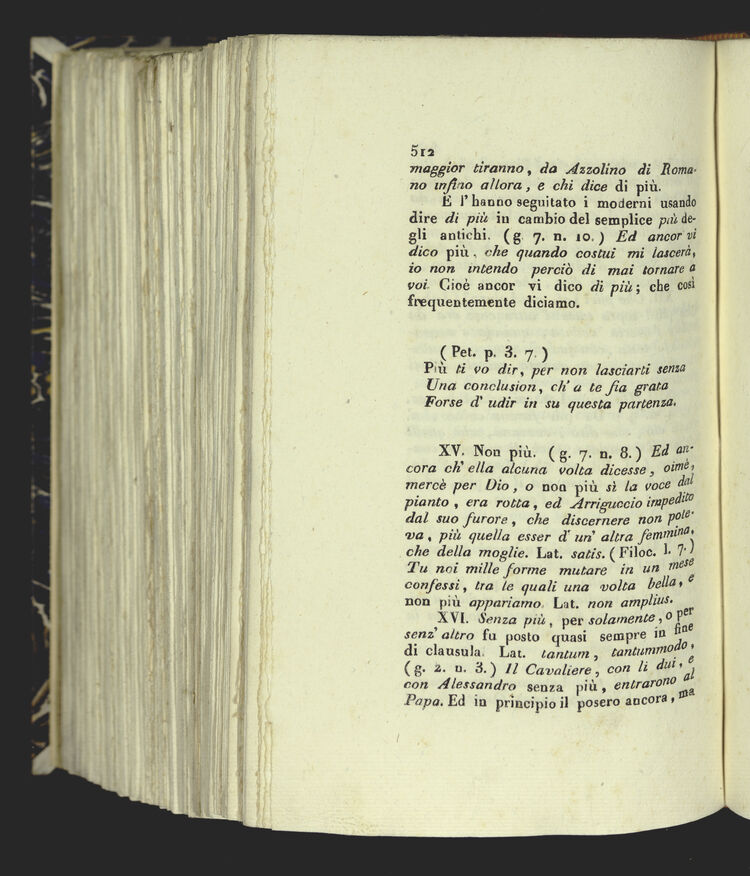 512
maggior tiranno, da Azzolino di Roma-
no infino allora, e chi dice di più.
E l'hanno seguitato i moderni usando
dire di più in cambio del semplice più de-
gli antichi. (g. 7. n. 10.) Ed ancor vi
dico più, che quando costui mi lascerà,
io non intendo perciò di mai tornare a
voi. Cioè ancor vi dico di più; che così
frequentemente diciamo.
(Pet. p. 3. 7.)
Più ti vo dir, per non lasciarti senza
Una conclusion, ch'a te fia grata
Forse d'udir in su questa partenza.
XV. Non più. (g. 7. n. 8.) Ed an-
cora ch'ella alcuna volta dicesse, oimè,
mercè per Dio, o non più sì la voce dal
pianto, era rotta, ed Arriguccio impedito
dal suo furore, che discernere non pote-
va, più quella esser d'un'altra femmina,
che della moglie. Lat. satis. (Filoc. l. 7.)
Tu noi mille forme mutare in un mese
confessi, tra le quali una volta bella, e
non più appariamo. Lat. non amplius.
XVI. Senza più, per solamente, o per
senz'altro fu posto quasi sempre in fine
di clausula. Lat. tantum, tantummodo,
(g. 2. n. 3.) Il Cavaliere, con li dui, e
con Alessandro senza più, entrarono al
Papa. Ed in principio il posero ancora, ma